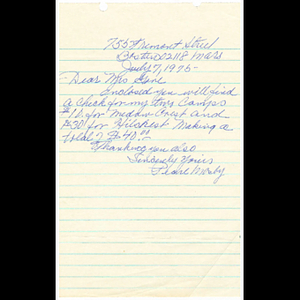 755 Tremont Street
Boston 02118 Mass
July 7, 1975-
Dear Mrs
Enclosed you will find
a check for my Camps
for Meadow Crest and
$30 for Hilcrest Making a
total of $40.00
Thanking you also
Sincerely Yours
Pearl